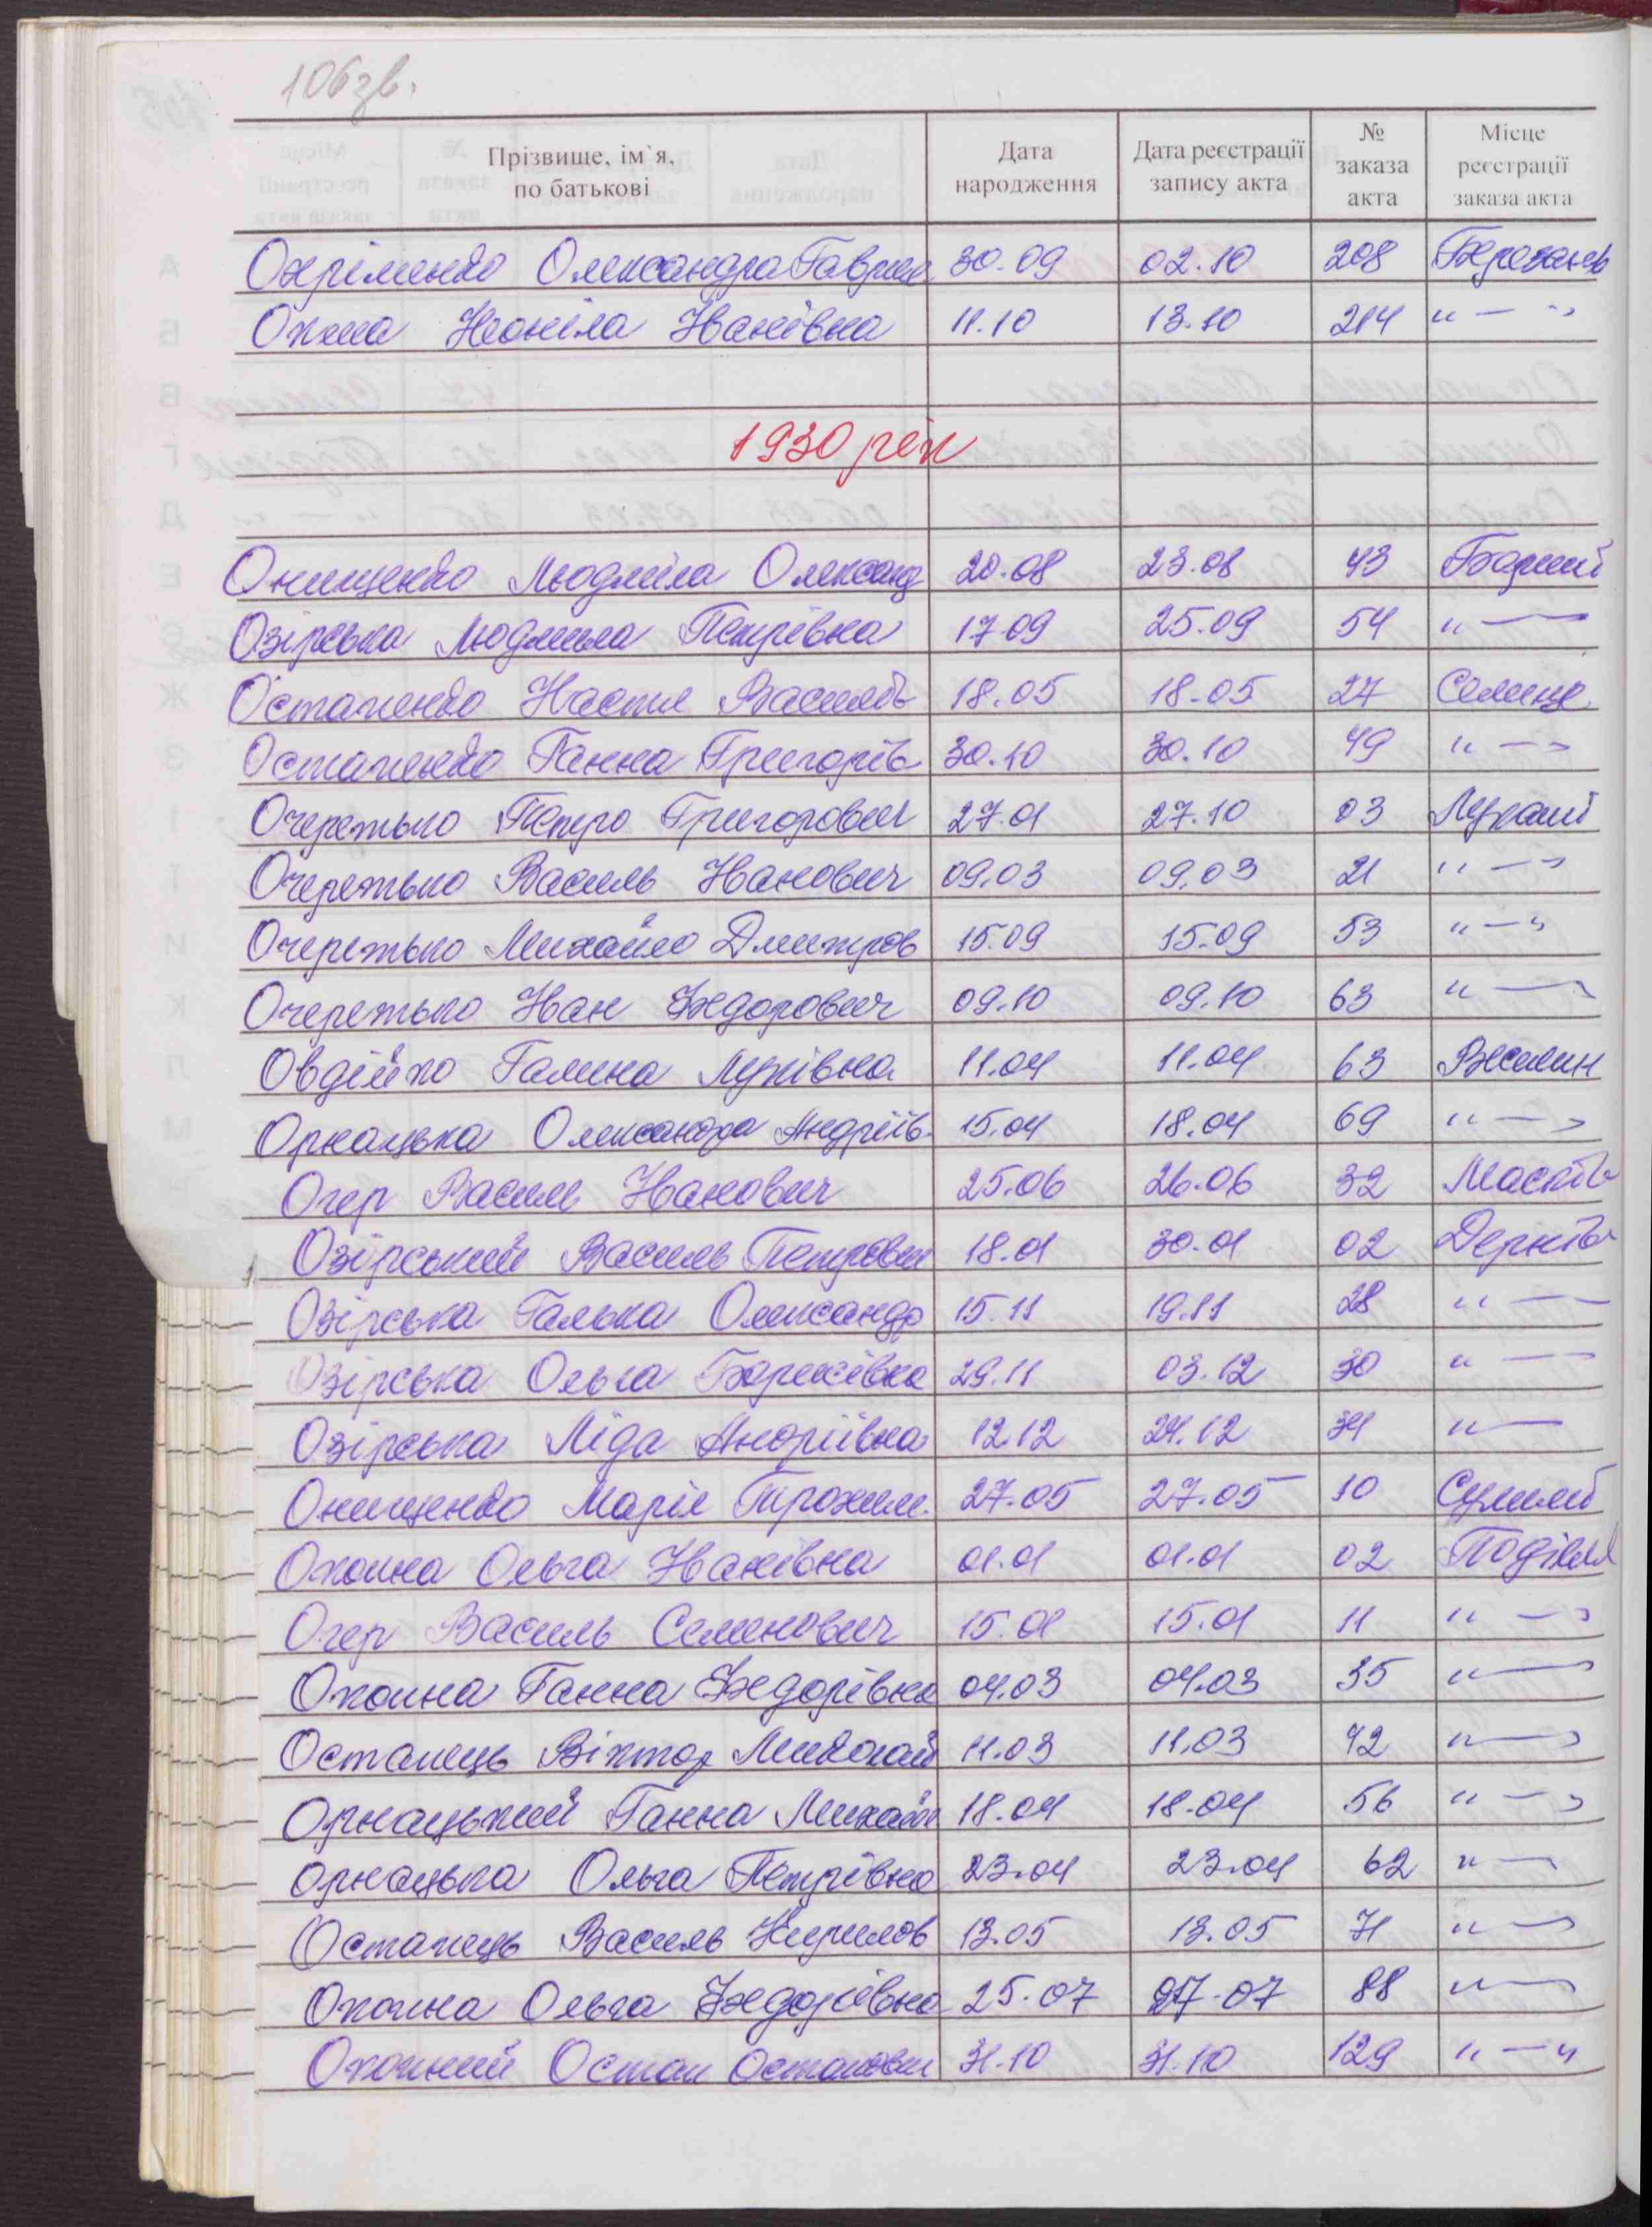 106 зв.
Прізвище, ім`я, по батькові | Дата народження | Дата реєстрації запису акта | № заказа акта | Місце реєстрації заказа акта
Охріменко Олександра Гаврил 30.09 02.10 208 Березань
Охма Неоніла Іванівна 11.10 13.10 214 "—"
1930 рік
Онищенко Людміла Олександ 20.08 23.08 43
Озірська Людмила Петрівна 17 09 25.09 54 "—
Остапенко Настя Василів 18.05 18.05 27 Селище
Остапенко Ганна Григорів 30.10 30.10 49 "—"
Очеретько Петро Григорович 27.01 27.10 03 Лукаші
Очеретько Василь Іванович 09.03 09.03 21 "—"
Очеретько Михайло Дмитров 15.09 15.09 53 "—"
Очеретько Іван Федорович 09.10 09.10 63 "—"
Овдійко Галина Луківна 11.04 11.04 63
Орнацька Олександра Андріїв 15.04 18.04 69 "—"
Огер Василь Іванович 25.06 26.06 32
Озірський Василь Петрович 18.01 30.01 02
Озірська Галька Олександр 15.11 19.11 28 "—
Озірська Ольга Борисівна 29.11 03.12 30 "—
Озірська Ліда Андріївна 12.12 24.12 34 "—
Онищенко Марія Трохим. 27.05 27.05 10
Охоцна Ольга Іванівна 01.01 01.01 02 Поділля
Огер Василь Семенович 15.01 15.01 11 "—"
Ганна Федорівна 04.03 04.03 35 "—"
Остапець Віктор Миколай 11.03 11.03 42 "—"
Орнацький Ганна Михайл 18.04 18.04 56 "—"
Орнацька Ольга Петрівна 23.04 23.04 62 "—
Остапець Василь Кирилов 13.05 13.05 71 "—"
Ольга Федорівна 25.07 27.07 88 "—"
Остап Остапович 31.10 31.10 129 "—"